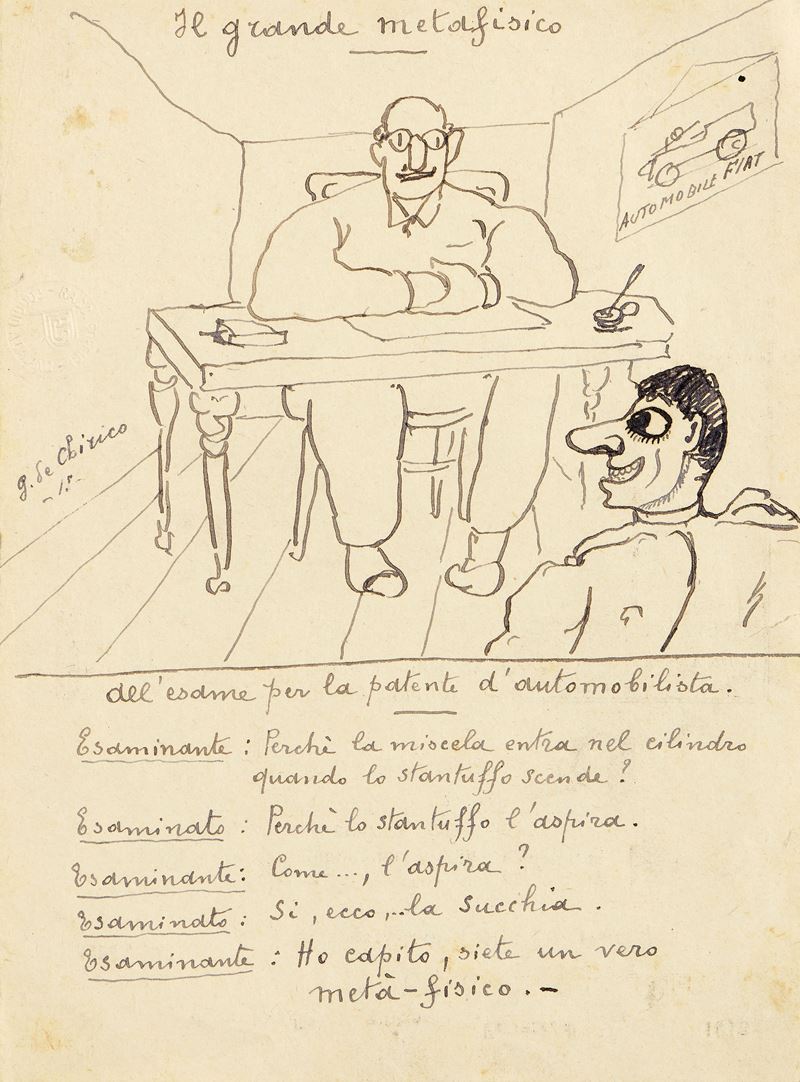 Il grande metafisico
AUTOMOBILE FIAT
g. de Chirico
dell'esame per la patente d'automobilista.
Esaminante : Perchè la miscela entra nel cilindro
quando lo stantuffo scende ?
Esaminato : Perchè lo stantuffo l'aspira.
Esaminante : Come..., l'aspira ?
Esaminato : Si, ecco,..la succhia .
Esaminante : Ho capito, siete un vero
metà-fisico . -